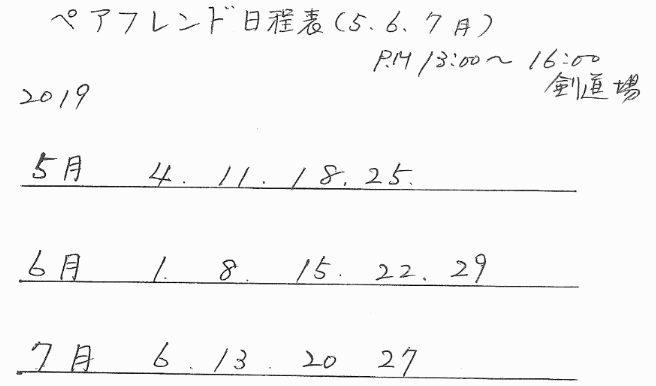 ペアフレンド日程表(5.6.7月)
P.M 13:00〜 16:00
剣道場
2019
5月 4. 11. 18. 25.
6月 1. 8. 15. 22. 29
7月 6. 13. 20 27